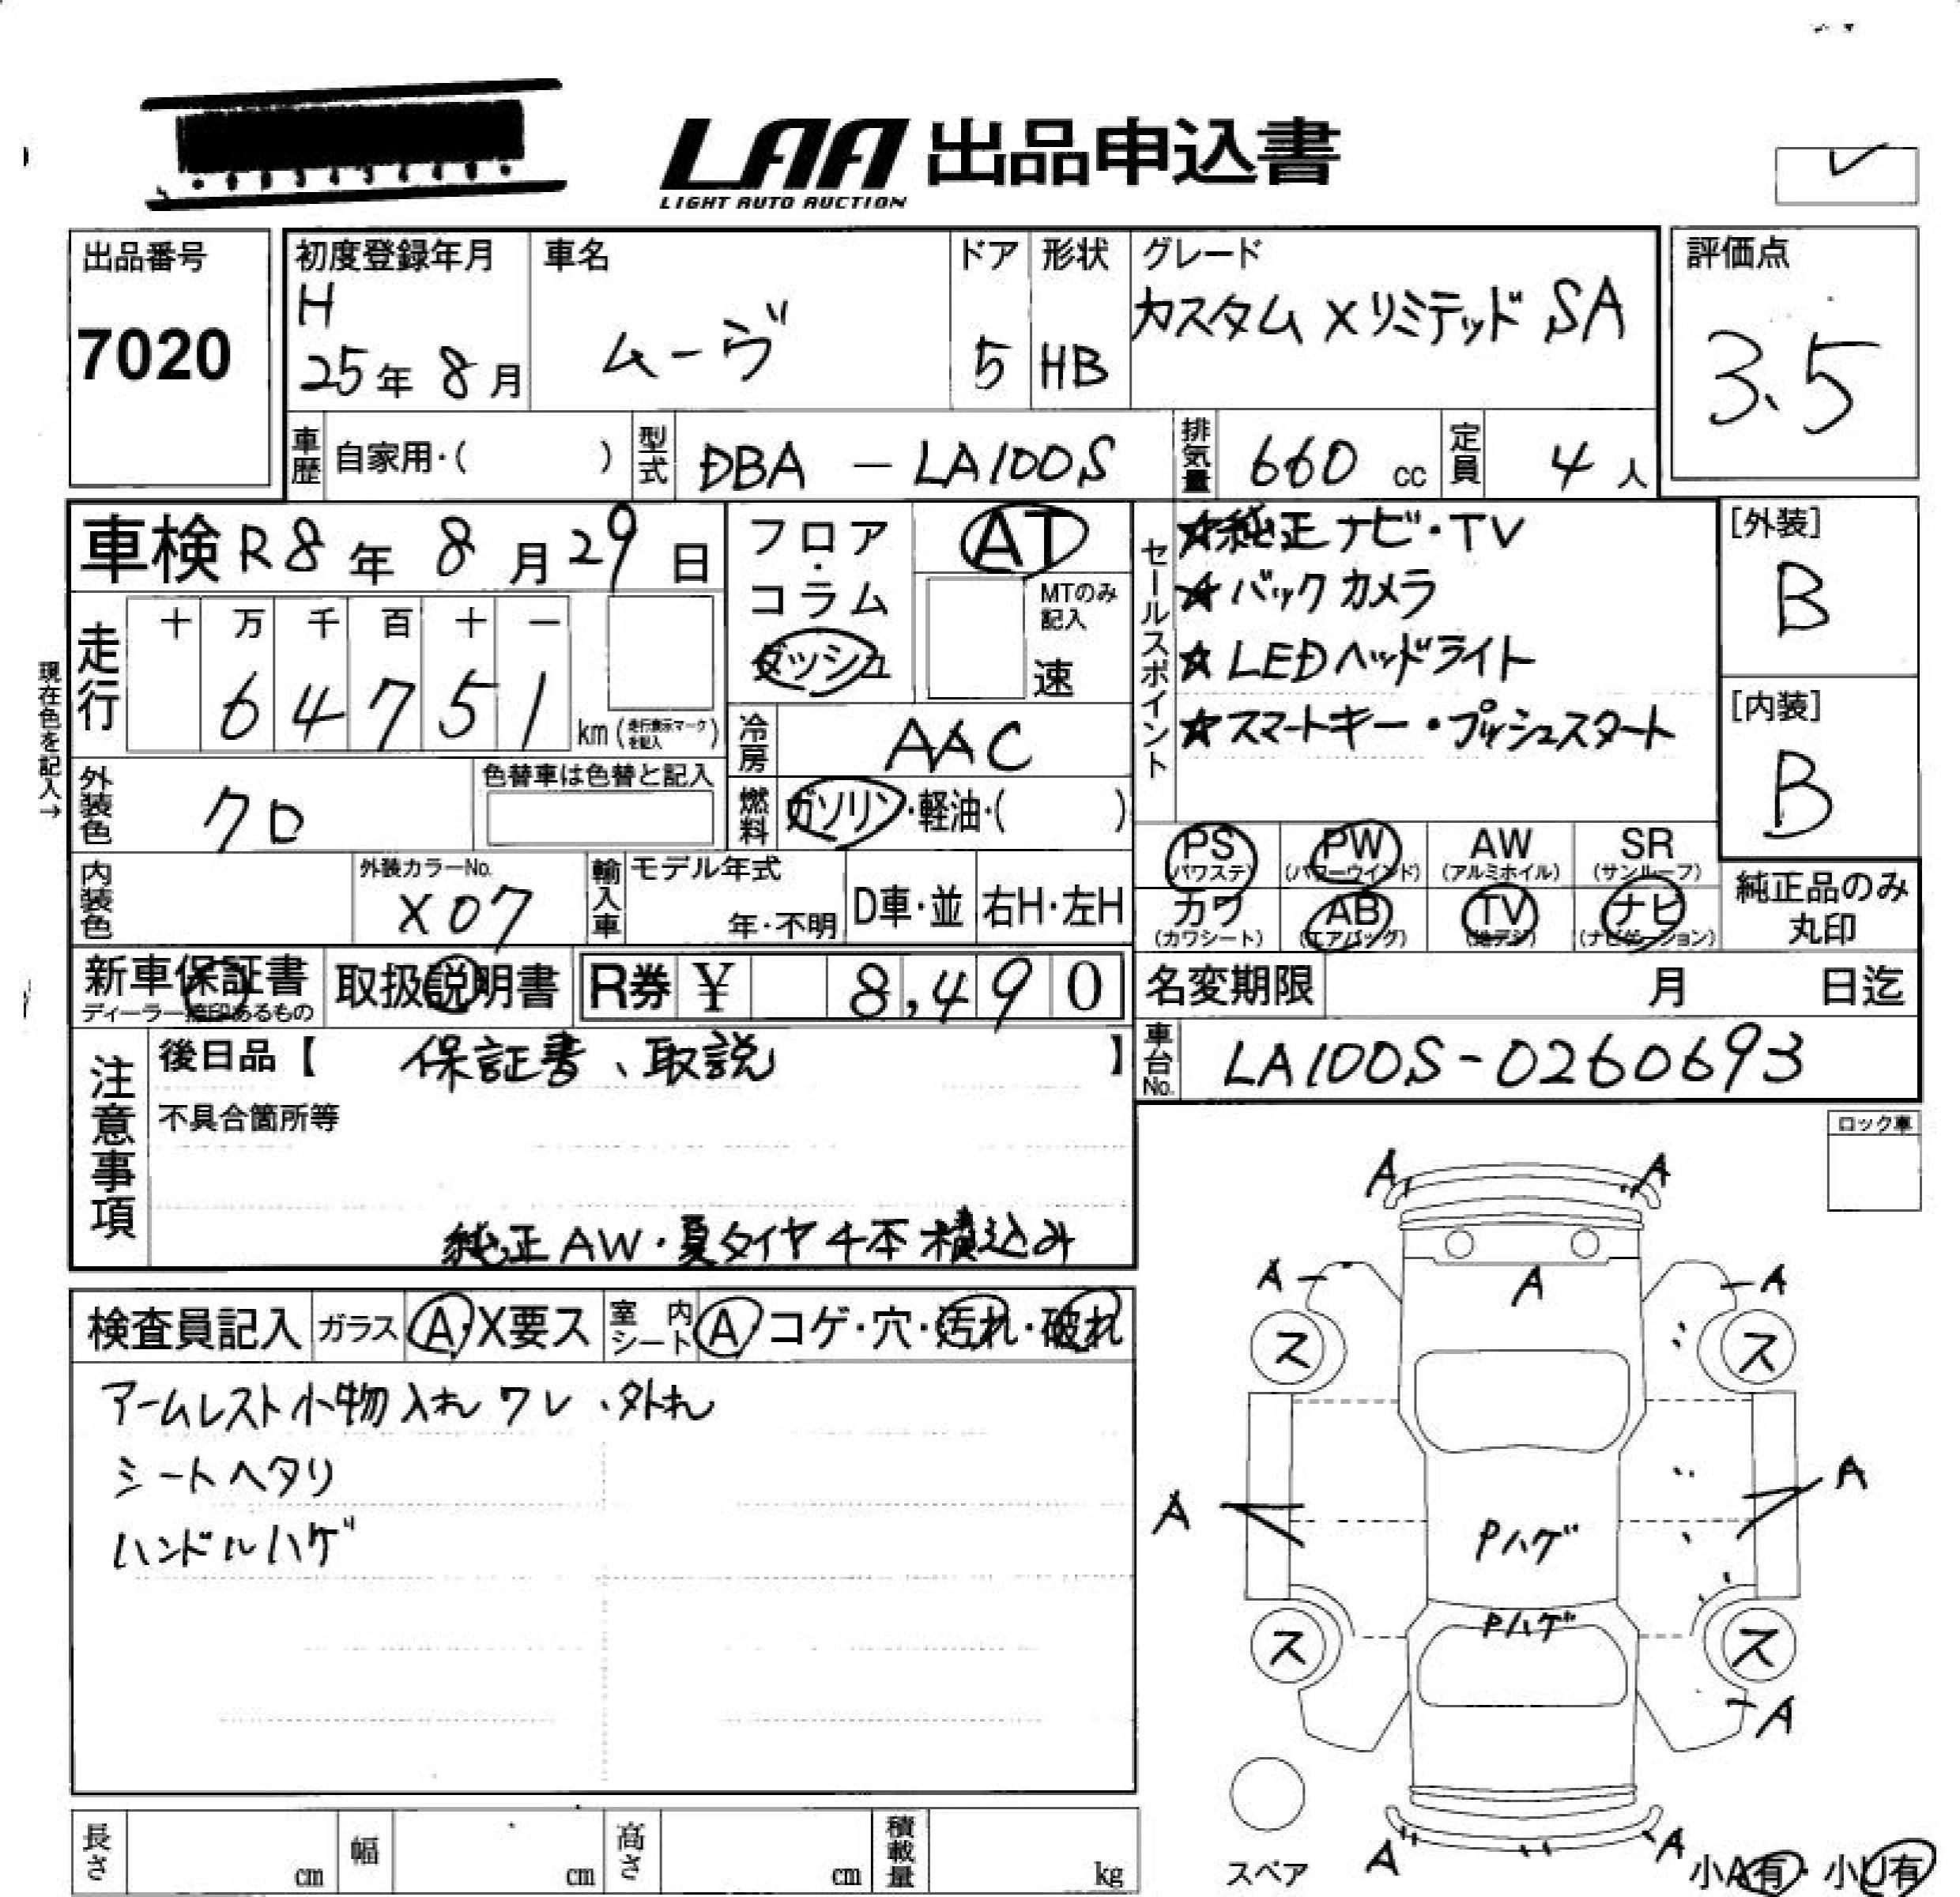 LAA 出品申込書
LIGHT AUTO AUCTION
出品番号
7020
初度登録年月
H
25年 8月
車名
ムーヴ
ドア
5
形状
HB
グレード
カスタム Xリミテッド SA
評価点
3.5
車歴 自家用・( )
型式 DBA - LA100S
排気量 660 cc
定員 4 人
車検 R8年 8月 29日
フロア・コラム
ダッシュ
AT
MTのみ記入
速
セールスポイント
☆純正ナビ・TV
☆バックカメラ
☆LEDヘッドライト
☆スマートキー・プッシュスタート
[外装]
B
[内装]
B
現在色を記入→
走行
十 万 千 百 十 一
6 4 7 5 1 km(走行表示マークを記入)
冷房 AAC
外装色 クロ
色替車は色替と記入
燃料 ガソリン・軽油・( )
PS (パワステ)
PW (パワーウインド)
AW (アルミホイル)
SR (サンルーフ)
カワ (カワシート)
AB (エアバッグ)
TV (地デジ)
ナビ (ナビゲーション)
純正品のみ
丸印
内装色
外装カラーNo.
X07
輸入車
モデル年式
年・不明
D車・並
右H・左H
新車保証書
ディーラー捺印あるもの
取扱説明書
R券 ¥ 8,490
名変期限 月 日迄
車台No. LA100S-0260693
注意事項
後日品【 保証書、取説 】
不具合箇所等
純正AW・夏タイヤ4本積込み
ロック車
検査員記入
ガラス A・X要ス
室内シート A コゲ・穴・汚れ・破れ
アームレスト小物入れワレ、外れ
シートヘタリ
ハンドルハゲ
A A
A A A
ス ス
A A
Pハゲ
Pハゲ
ス ス
A
A A
スペア
小A有・小U有
長さ cm
幅 cm
高さ cm
積載量 kg